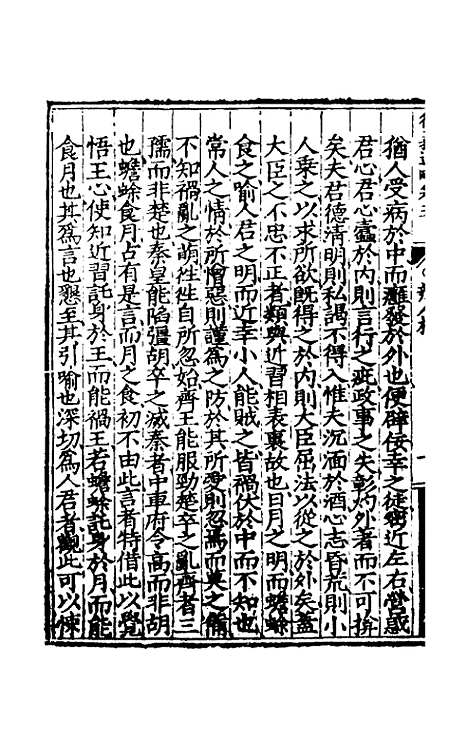 猶人受病於中而癰發於外也便辟佞幸之徒密近左右營惑
君心君心蠱於內則言行之疵政事之失彰灼外著而不可揜
矣夫君德清明則私謁不得入惟夫沉湎於酒心志昏荒則小
人乗之以求所欲旣得之於內則大臣屈法以從之於外矣葢
大臣之不忠不正者類與近習相表裏故也曰日月之明而蟾蜍
食之喻人君之明而近幸小人能賊之皆禍伏於中而不知也
常人之情於所憎惡則謹爲之防於其所愛則忽焉而莫之備
不知禍亂之萌徃徃自所忽始齊王能服勁楚卒之亂齊者三
孺而非楚也秦皇能陷彊胡卒之滅秦者中車府令高而非胡
也蟾蜍食月占有是言而月之食初不由此言者特借此以覺
悟王心使知近習託身於王而能禍王若蟾蜍託身於月而能
食月也其爲言也懇至其引喻也深切爲人君者觀此可以悚